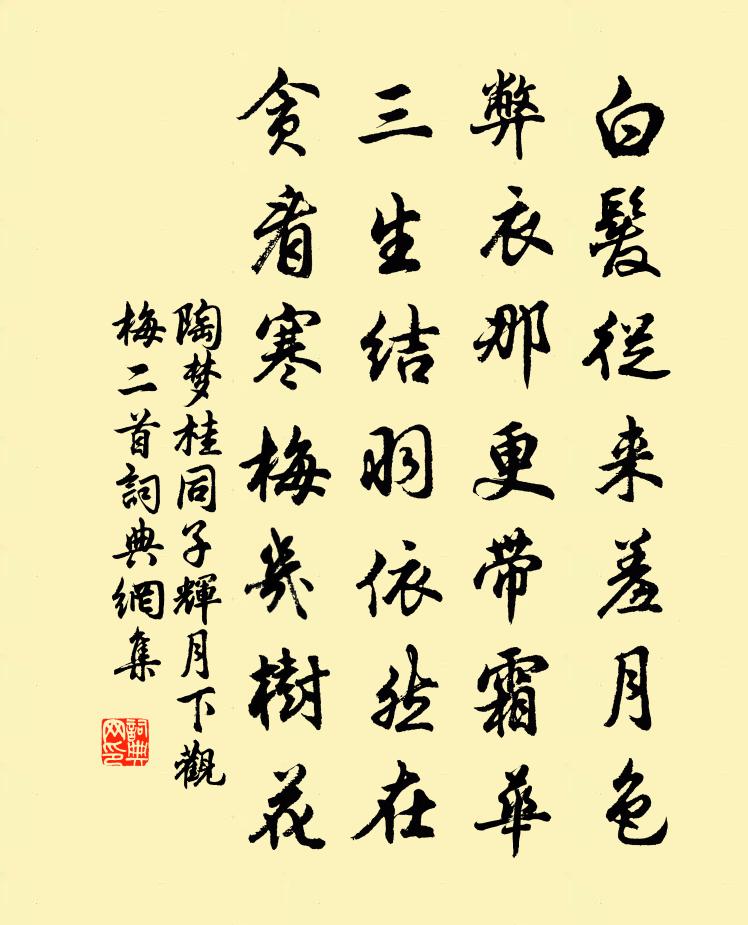 白髮從来羞月色
弊衣那更带霜華
三生结羽依然在
貪看寒梅幾樹花
陶梦桂同子輝月下觀
梅二首詞典網集
詞典
网印